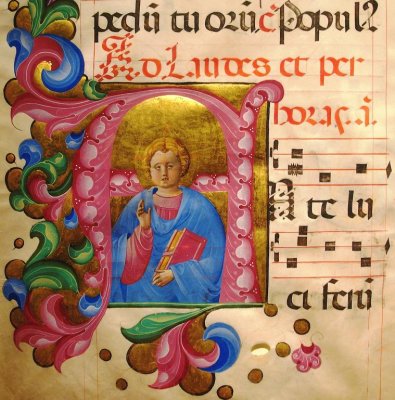 pedū tuorū Popul
Ad Laudes et per
horas. ā.
A N te lu
ci ferū